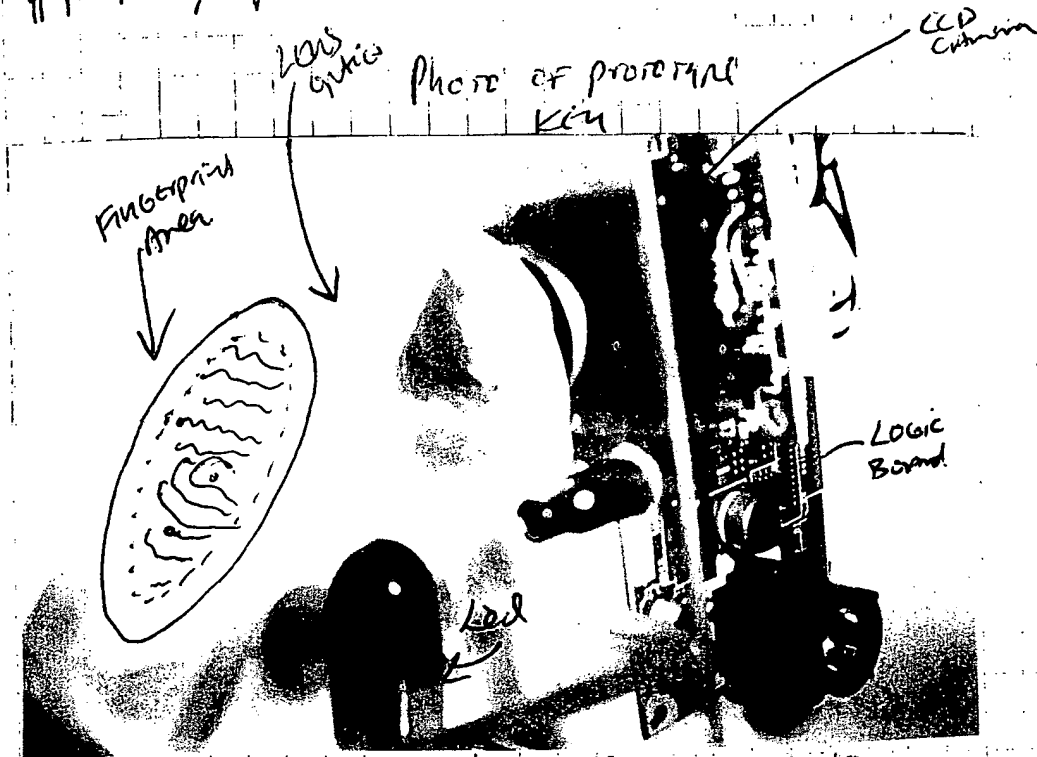 Lens
Optics
Photo of prototype
Key
CCD
Fingerprint
Area
Logic
Board
Led